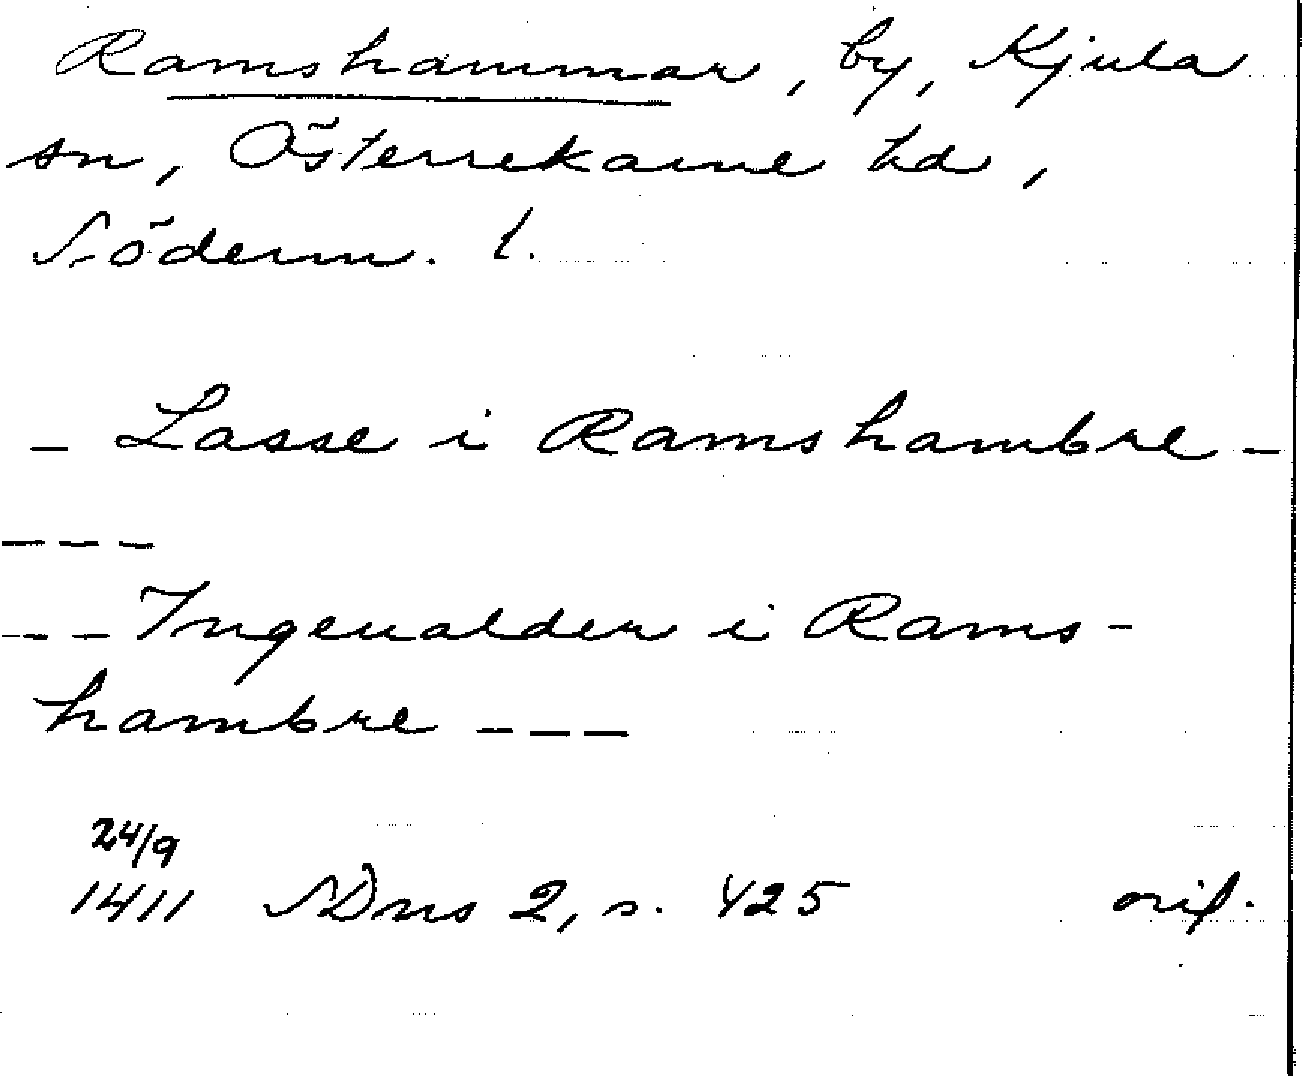 Ramshammar, by, Kjula
sn, Österrekarne hd,
Söderm. l.
- Lasse i Ramshambre -
---
--- Ingeualder i Rams-
hambre ---
24/9
1411 SDns 2, s. 425 orig.